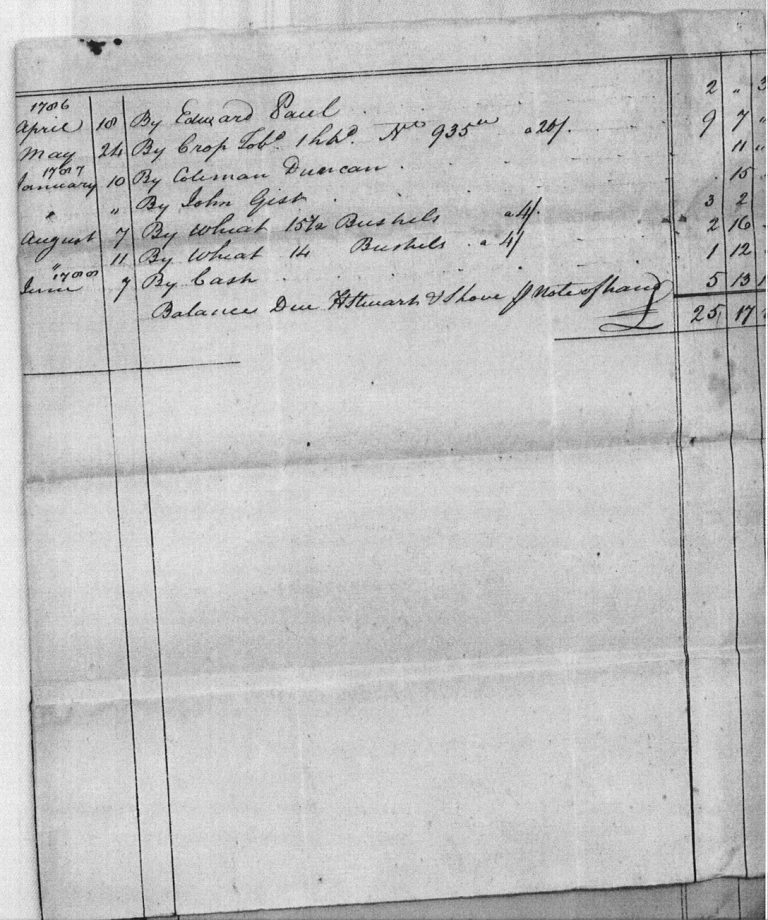 1786
April 18 By Edward Paul 2 " 3
May 24 By Crop Tobo. 1 hhd. No 935 a 20/. 9 7 "
1787
January 10 By Coleman Duncan 11 "
" " By John Gist 15
August 7 By Wheat 15½ Bushels a 4/ 3 2
" 11 By Wheat 14 Bushels a 4/ 2 16
1788
June 7 By Cash 1 12
Balance Due HStewart & Shore Note of hand 5 13
£ 25 17